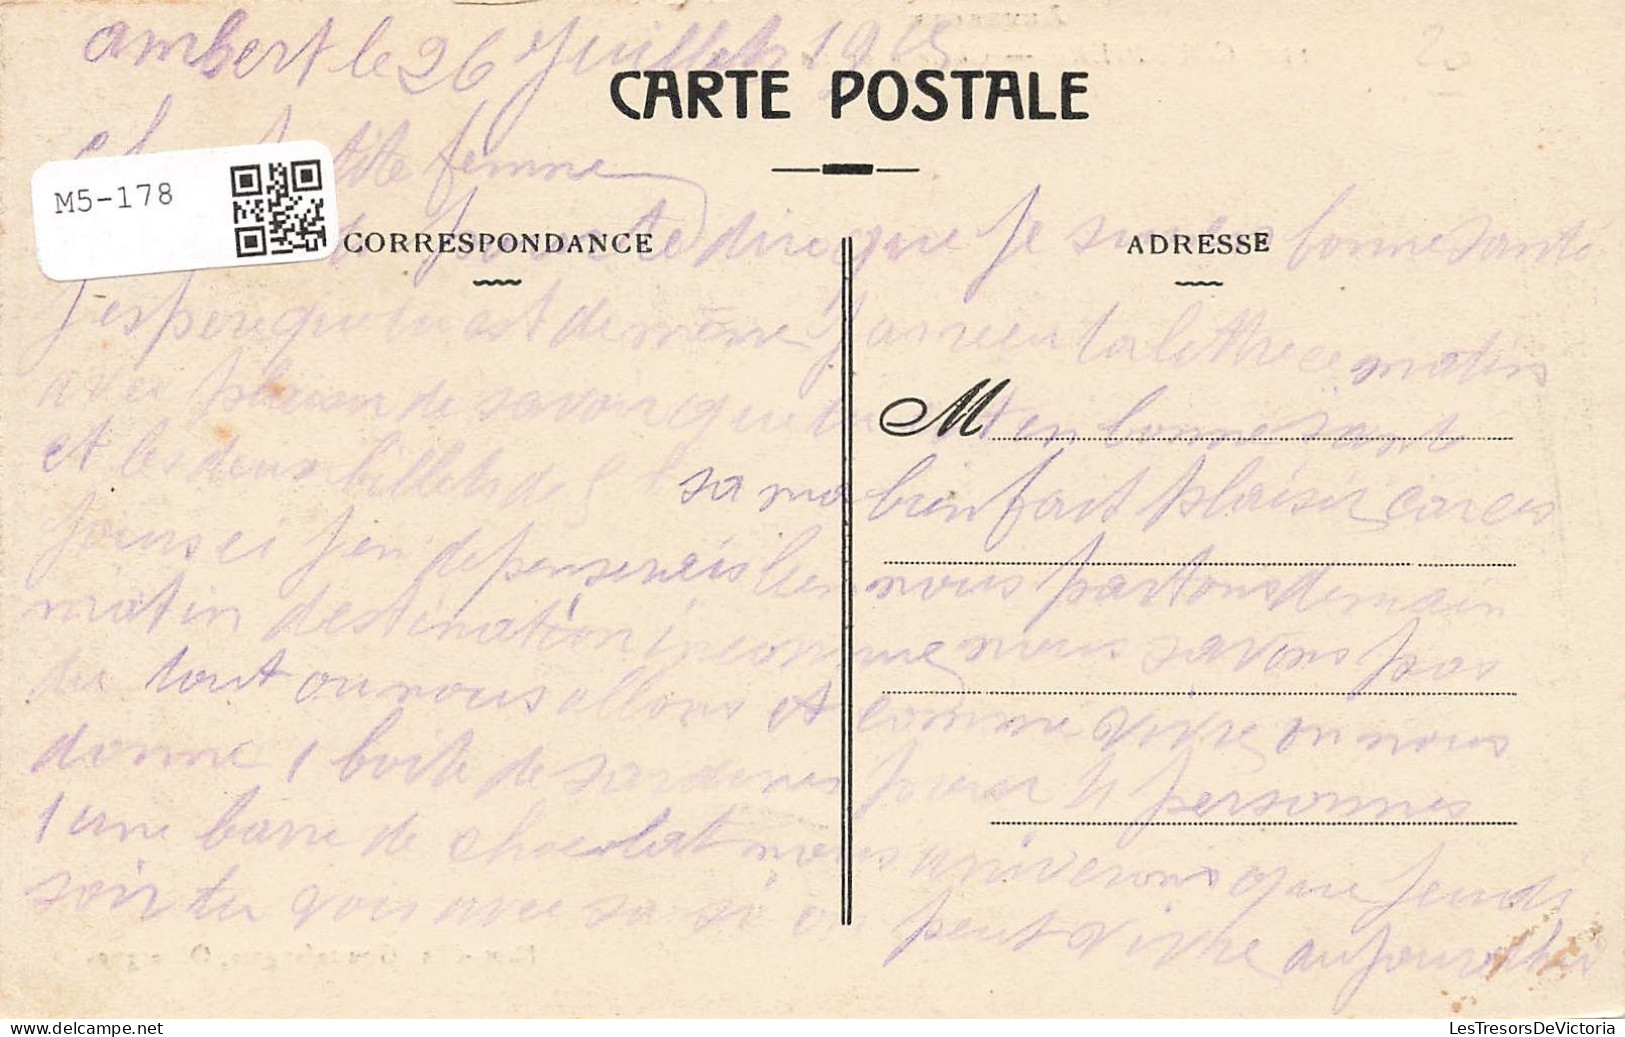 ambert le 26 Juillet 1915
CARTE POSTALE
petite femme
M5-178
CORRESPONDANCE
ADRESSE
te dire que je suis bonne santé
J espere que tu est de même J ai recu ta lettre ce matin
avec plaisir de savoir que tu est en bonne santé
M
et les deux billets de 5 sa ma bien fait plaisir car ces
Jours ci J en depenserais bien nous partons demain
matin destination inconnue nous savons pas
du tout ou nous allons et comme vivre on nous
donne 1 boite de sardines pour 4 personnes
1 une barre de chocolat nous arriverons que Jeudi
soir tu vois avec sa si on peut vivre aujourdhui
LesTresorsDeVictoria